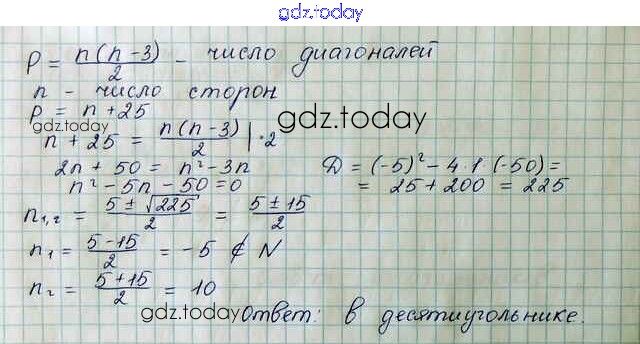 gdz.today
P = n(n-3)/2 - число диагоналей
n - число сторон
P = n+25
gdz.today
gdz.today
n + 25 = n(n-3)/2 | ·2
2n + 50 = n² - 3n
D = (-5)² - 4·1·(-50) =
n² - 5n - 50 = 0
= 25 + 200 = 225
n₁,₂ = 5 ± √225/2 = 5 ± 15/2
n₁ = 5-15/2 = -5 ∉ N
n₂ = 5+15/2 = 10
gdz.today
Ответ: в десятиугольнике.